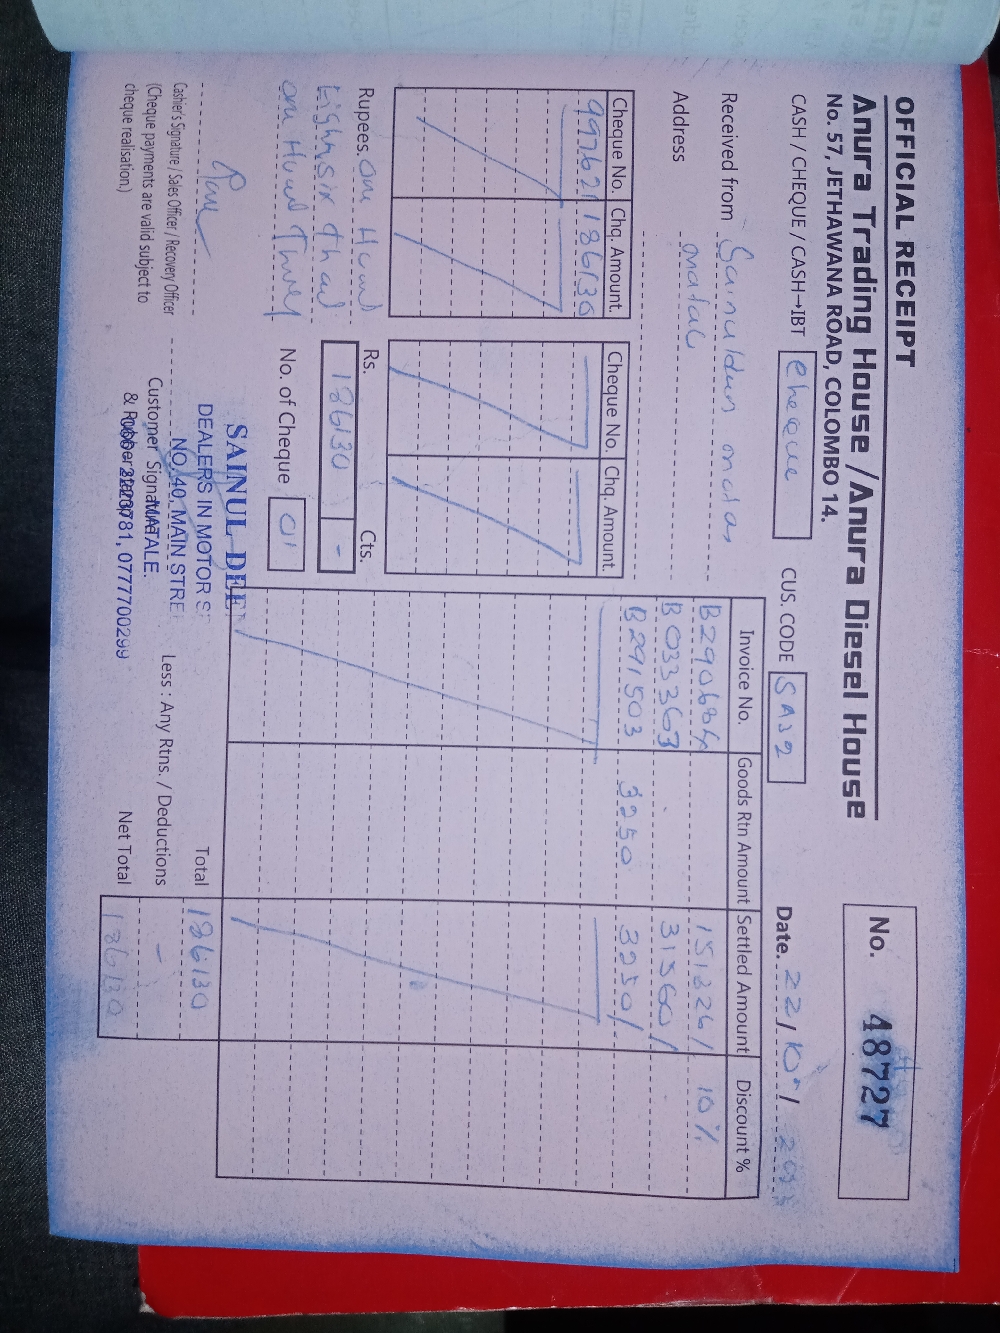 OFFICIAL RECEIPT
Anura Trading House / Anura Diesel House
No. 57, JETHAWANA ROAD, COLOMBO 14.
No. 48727
CASH / CHEQUE / CASH→IBT cheque
CUS. CODE SA32
Date. 22/10/
Received from Sainuldeen motors
Address matale
Cheque No. Chq. Amount.
997621 186130
Cheque No. Chq. Amount.
Invoice No. Goods Rtn Amount Settled Amount Discount %
B290684 151326/ 10%
B033363 31560/
B291503 3250 3250/
Rupees.
Rs. Cts.
186130 -
No. of Cheque 01
Total 186130
Less : Any Rtns. / Deductions -
Net Total 186130
Cashier's Signature / Sales Officer / Recovery Officer
(Cheque payments are valid subject to
cheque realisation)
Customer Signature
& Rubber Stamp
SAINUL DEE
DEALERS IN MOTOR S
NO. 40, MAIN STRE
MATALE.
066-2223781, 0777700299